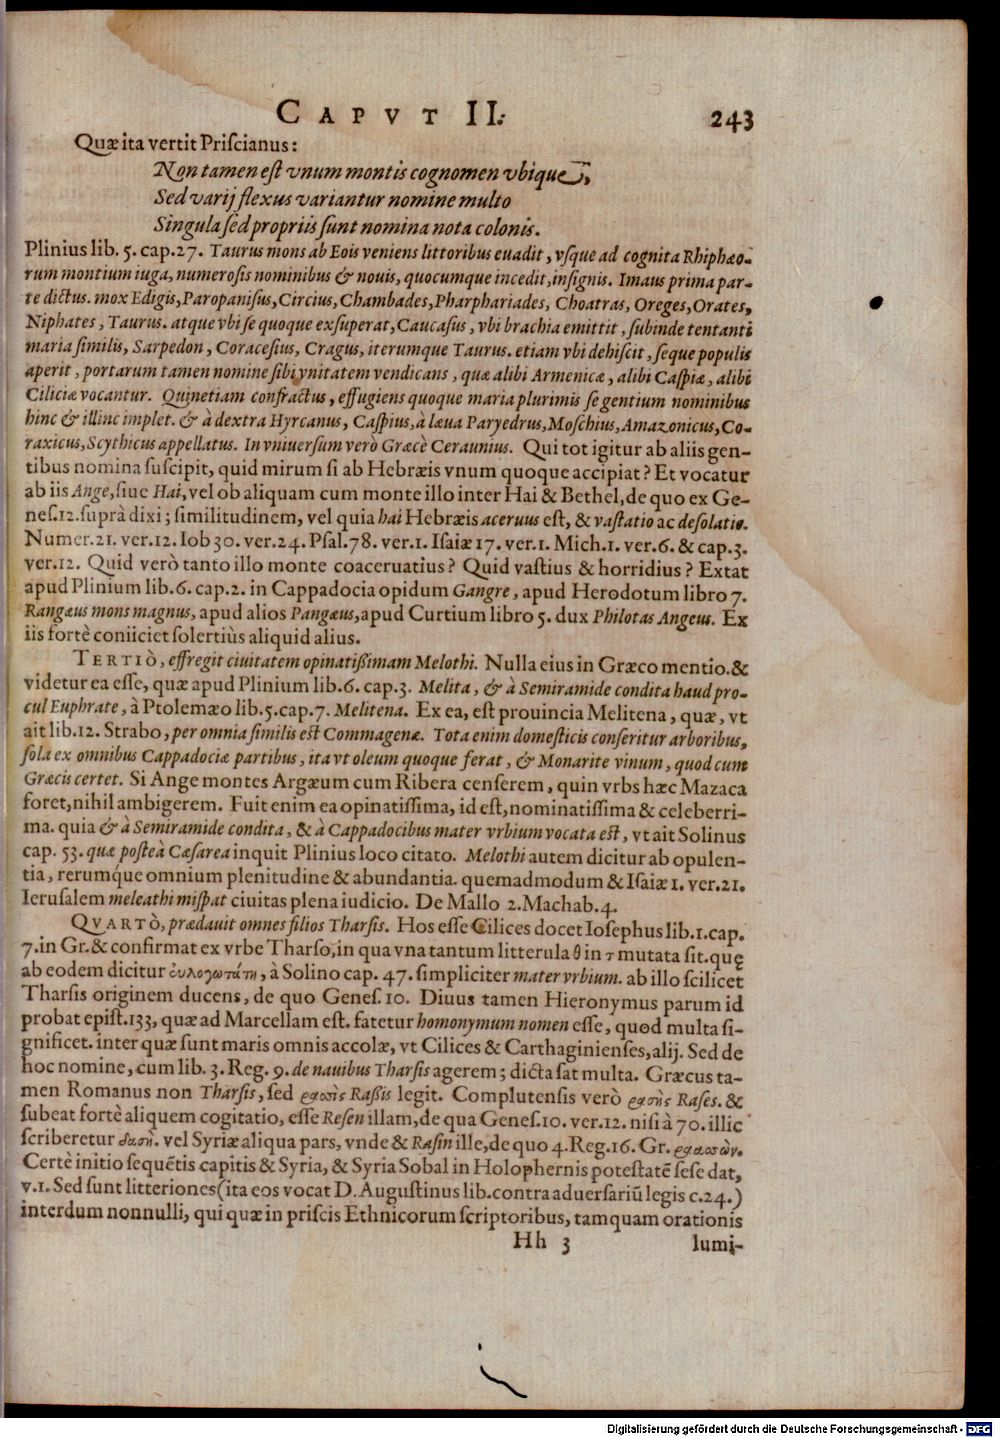 CAPVT II. 243
Quæ ita vertit Priſcianus:
Non tamen eſt vnum montis cognomen vbique,
Sed varij flexus variantur nomine multo
Singula ſed propriis ſunt nomina nota colonis.
Plinius lib. 5. cap. 27. Taurus mons ab Eois veniens littoribus euadit, vſque ad cognita Rhiphæo-
rum montium iuga, numeroſis nominibus & nouis, quocumque incedit, inſignis. Imaus prima par-
te dictus. mox Edigis, Paropaniſus, Circius, Chambades, Pharphariades, Choatras, Oreges, Orates,
Niphates, Taurus. atque vbi ſe quoque exſuperat, Caucaſus, vbi brachia emittit, ſubinde tentanti
maria ſimilis, Sarpedon, Coraceſius, Cragus, iterumque Taurus. etiam vbi dehiſcit, ſeque populis
aperit, portarum tamen nomine ſibi vnitatem vendicans, quæ alibi Armenicæ, alibi Caſpiæ, alibi
Ciliciæ vocantur. Quinetiam confractus, effugiens quoque maria plurimis ſe gentium nominibus
hinc & illinc implet. & à dextra Hyrcanus, Caſpius, à læua Paryedrus, Moſchius, Amazonicus, Co-
raxicus, Scythicus appellatus. In vniuerſum verò Græcè Ceraunius. Qui tot igitur ab aliis gen-
tibus nomina ſuſcipit, quid mirum ſi ab Hebræis vnum quoque accipiat? Et vocatur
ab iis Ange, ſiue Hai, vel ob aliquam cum monte illo inter Hai & Bethel, de quo ex Ge-
neſ. 12. ſuprà dixi; ſimilitudinem, vel quia hai Hebræis aceruus eſt, & vaſtatio ac deſolatio.
Numer. 21. ver. 12. Iob 30. ver. 24. Pſal. 78. ver. 1. Iſaiæ 17. ver. 1. Mich. 1. ver. 6. & cap. 3.
ver. 12. Quid verò tanto illo monte coaceruatius? Quid vaſtius & horridius? Extat
apud Plinium lib. 6. cap. 2. in Cappadocia opidum Gangre, apud Herodotum libro 7.
Rangæus mons magnus, apud alios Pangæus, apud Curtium libro 5. dux Philotas Angeus. Ex
iis fortè coniiciet ſolertiùs aliquid alius.
TERTIÒ, effregit ciuitatem opinatißimam Melothi. Nulla eius in Græco mentio. &
videtur ea eſſe, quæ apud Plinium lib. 6. cap. 3. Melita, & à Semiramide condita haud pro-
cul Euphrate, à Ptolemæo lib. 5. cap. 7. Melitena. Ex ea, eſt prouincia Melitena, quæ, vt
ait lib. 12. Strabo, per omnia ſimilis eſt Commagenæ. Tota enim domeſticis conſeritur arboribus,
ſola ex omnibus Cappadociæ partibus, ita vt oleum quoque ferat, & Monarite vinum, quod cum
Græcis certet. Si Ange montes Argæum cum Ribera cenſerem, quin vrbs hæc Mazaca
foret, nihil ambigerem. Fuit enim ea opinatiſſima, id eſt, nominatiſſima & celeberri-
ma. quia & à Semiramide condita, & à Cappadocibus mater vrbium vocata eſt, vt ait Solinus
cap. 53. quæ poſteà Cæſarea inquit Plinius loco citato. Melothi autem dicitur ab opulen-
tia, rerumq́ue omnium plenitudine & abundantia. quemadmodum & Iſaiæ 1. ver. 21.
Ieruſalem meleathi miſpat ciuitas plena iudicio. De Mallo 2. Machab. 4.
QVARTÒ, prædauit omnes filios Tharſis. Hos eſſe Cilices docet Ioſephus lib. 1. cap.
7. in Gr. & confirmat ex vrbe Tharſo, in qua vna tantum litterula θ in τ mutata ſit. quę
ab eodem dicitur , à Solino cap. 47. ſimpliciter mater vrbium. ab illo ſcilicet
Tharſis originem ducens, de quo Geneſ. 10. Diuus tamen Hieronymus parum id
probat epiſt. 133, quæ ad Marcellam eſt. fatetur homonymum nomen eſſe, quod multa ſi-
gnificet. inter quæ ſunt maris omnis accolæ, vt Cilices & Carthaginienſes, alij. Sed de
hoc nomine, cum lib. 3. Reg. 9. de nauibus Tharſis agerem; dicta ſat multa. Græcus ta-
men Romanus non Tharſis, ſed Raßis legit. Complutenſis verò Raſes. &
ſubeat fortè aliquem cogitatio, eſſe Reſen illam, de qua Geneſ. 10. ver. 12. niſi à 70. illic
ſcriberetur . vel Syriæ aliqua pars, vnde & Raſin ille, de quo 4. Reg. 16. Gr.
Certè initio ſequētis capitis & Syria, & Syria Sobal in Holophernis poteſtatē ſeſe dat,
v. 1. Sed ſunt litteriones (ita eos vocat D. Auguſtinus lib. contra aduerſariū legis c. 24.)
interdum nonnulli, qui quæ in priſcis Ethnicorum ſcriptoribus, tamquam orationis
Hh 3 lumi-
Digitalisierung gefördert durch die Deutsche Forschungsgemeinschaft - DFG